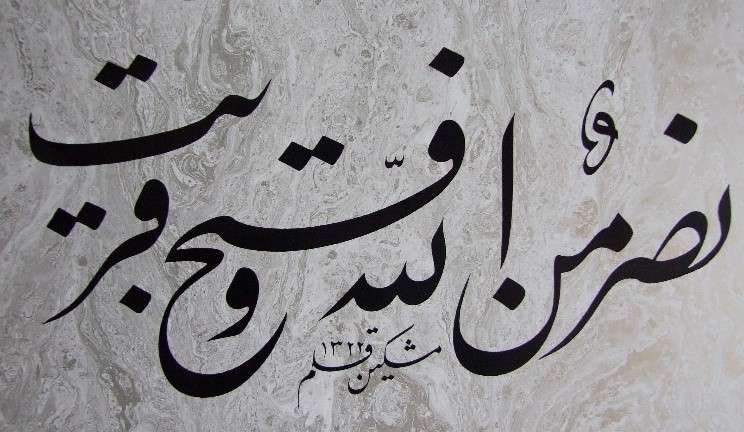 نصرٌ من الله و فتح قریب
مشکین قلم ١٣٢٢